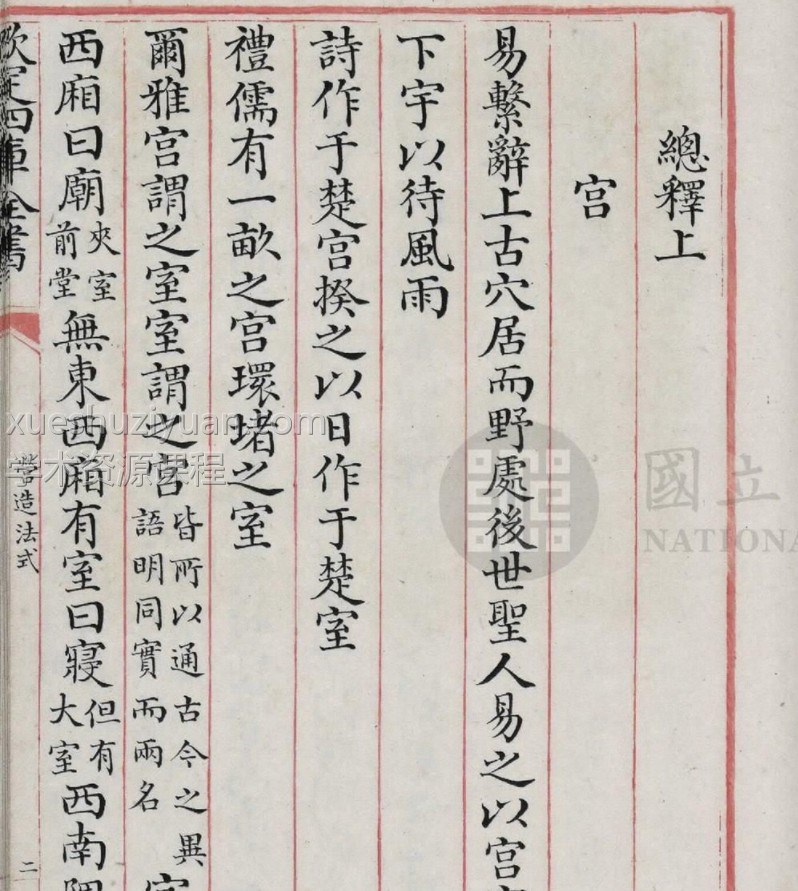 總釋上
宮
易繫辭上古穴居而野處後世聖人易之以宮
下宇以待風雨
詩作于楚宮揆之以日作于楚室
禮儒有一畝之宮環堵之室
爾雅宮謂之室室謂之宮皆所以通古今之異語明同實而兩名
西廂曰廟夾室前堂無東西廂有室曰寢但有大室西南隅
欽定四庫全書
營造法式
二
國立
NATIONA
xueshuziyuan.com
学术资源课程